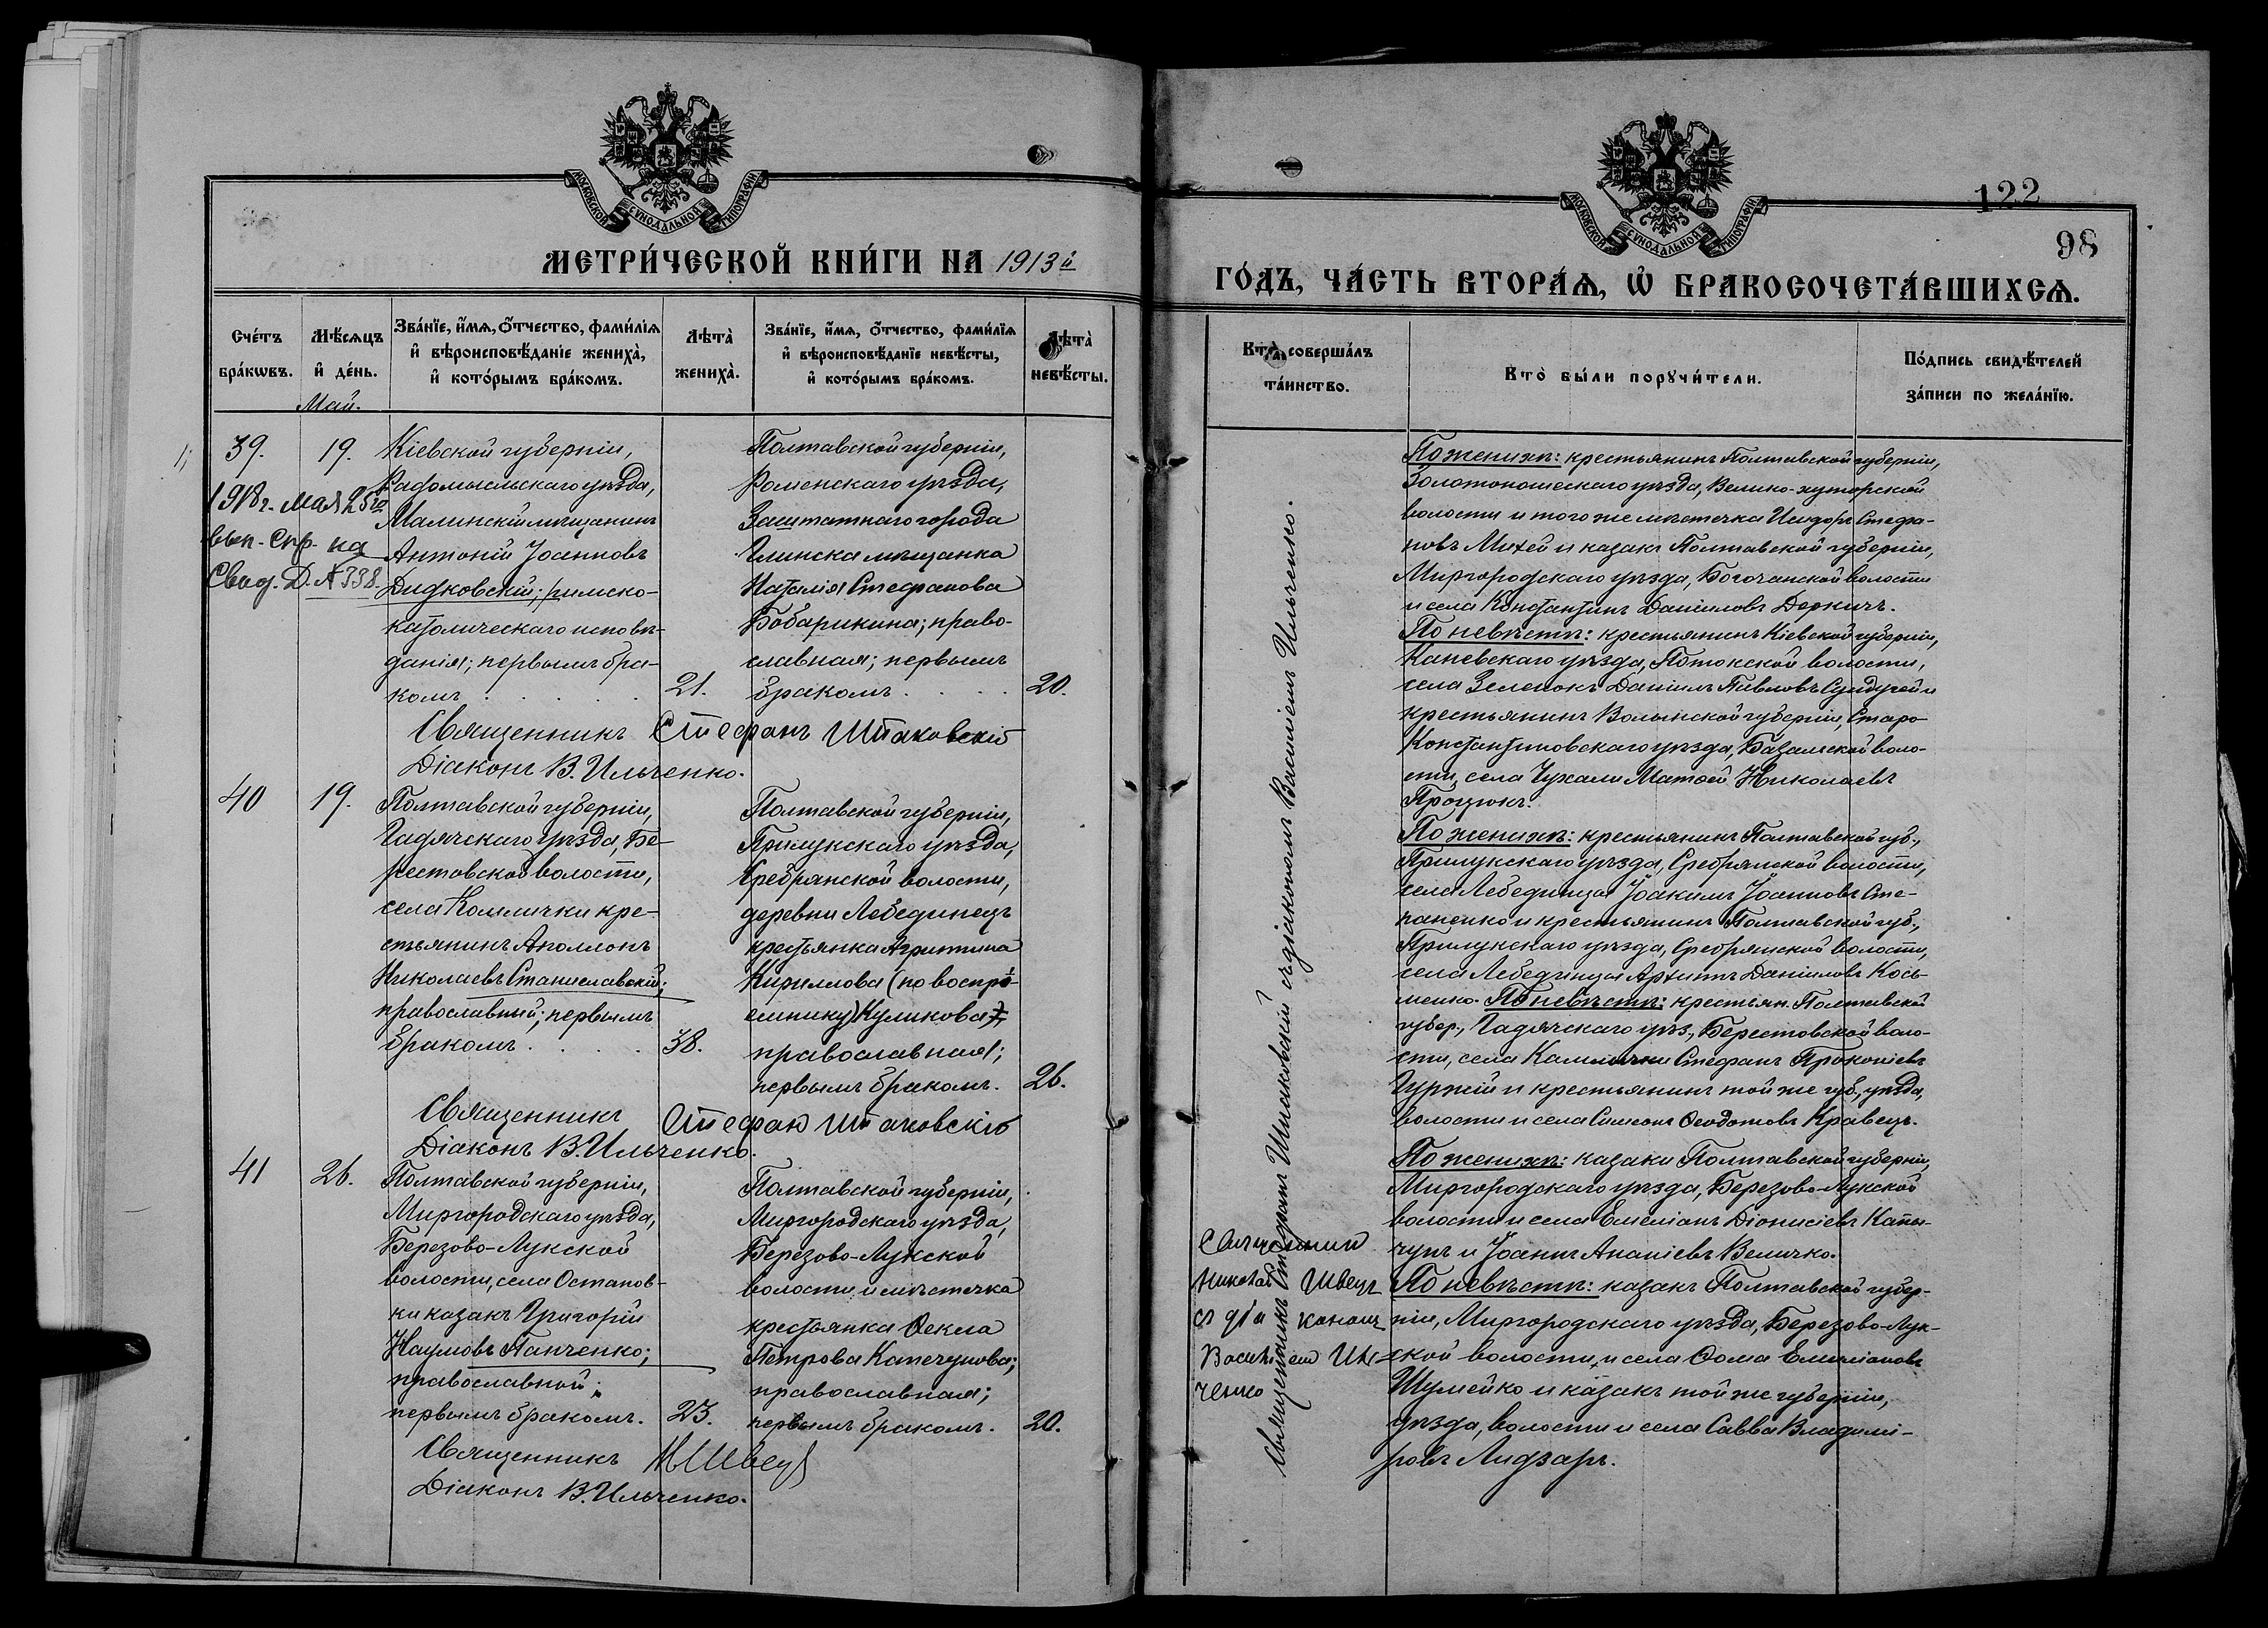 МОСКОВСКОЙ СѴНОДАЛЬНОЙ ТИПОГРАФІИ
МЕТРИ́ЧЕСКОЙ КНИ́ГИ НА 1913й
Сче́тъ бра́кѡвъ.
Мѣ́сѧцъ и҆ де́нь.
Зва́нїе, и҆́мѧ, ѻ҆́тчество, фами́лїѧ
и҆ вѣроисповѣ́данїе жениха̀,
и҆ кото́рымъ бра́комъ.
Лѣта̀ жениха̀.
Зва́нїе, и҆́мѧ, ѻ҆́тчество, фами́лїѧ
и҆ вѣроисповѣ́данїе невѣ́сты,
и҆ кото́рымъ бра́комъ.
Лѣта̀ невѣ́сты.
Май.
39.
19.
1918 г. мая 25го
вып. Спр. на
Свид. Д. № 338.
Кіевской губерніи,
Радомысльскаго уѣзда,
Малинскій мѣщанинъ
Антоній Іоанновъ
Дидковскій; римско-
католическаго исповѣ-
данія; первымъ бра-
комъ . . . .
21.
Полтавской губерніи,
Роменскаго уѣзда,
Заштатнаго города
Глинска мѣщанка
Наталія Стефанова
Бобарикина; право-
славная; первымъ
бракомъ . . . .
20.
Священникъ Стефанъ Шпаковскій
Діаконъ В. Ильченко.
40
19.
Полтавской губерніи,
Гадячскаго уѣзда, Бе-
рестовской волости,
села Комлички кре-
стьянинъ Аполлонъ
Николаевъ Станиславскій;
православный; первымъ
бракомъ . . . .
38.
Полтавской губерніи,
Прилукскаго уѣзда,
Сребрянской волости,
деревни Лебединецъ
крестьянка Агриппина
Кириллова (по воспрі-
емнику) Куликова;
православная;
первымъ бракомъ.
26.
Священникъ Стефанъ Шпаковскій
Діаконъ В. Ильченко.
41
26.
Полтавской губерніи,
Миргородскаго уѣзда,
Березово-Лукской
волости, села Останов-
ки казакъ Григорій
Наумовъ Панченко;
православной;
первымъ бракомъ.
23.
Полтавской губерніи,
Миргородскаго уѣзда,
Березово-Лукской
волости и мѣстечка
крестьянка Ѳекла
Петрова Капечунова;
православная;
первымъ бракомъ.
20.
Священникъ Н Швецъ
Діаконъ В. Ильченко.
МОСКОВСКОЙ СѴНОДАЛЬНОЙ ТИПОГРАФІИ
122
98
ГО́ДЪ, ЧА́СТЬ ВТОРА́Ѧ, Ѡ҆ БРАКОСОЧЕТА́ВШИХСѦ.
Кто̀ соверша́лъ
та́инство.
Кто̀ бы́ли порꙋчи́тели.
По́дпись свидѣ́телей
за́писи по жела́нїю.
Священникъ Стефанъ Шпаковскій съ діакономъ Василіемъ Ильченко.
По женихѣ: крестьянинъ Полтавской губерніи,
Золотоношескаго уѣзда, Велико-хуторской
волости и того же мѣстечка Исидоръ Стефа-
новъ Михей и казакъ Полтавской губерніи,
Миргородскаго уѣзда, Богочанской волости
и села Константинъ Даніиловъ Деркичъ.
По невѣстѣ: крестьянинъ Кіевской губерніи,
Каневскаго уѣзда, Потокской волости,
села Зеленокъ Даніилъ Павловъ Сундугей и
крестьянинъ Волынской губерніи, Старо-
Константиновскаго уѣзда, Базалійской воло-
сти, села Чухали Матѳей Николаевъ
Процюкъ.
По женихѣ: крестьянинъ Полтавской губ.,
Прилукскаго уѣзда, Сребрянской волости,
села Лебединца Іоакимъ Іоанновъ Сте-
паненко и крестьянинъ Полтавской губ.,
Прилукскаго уѣзда, Сребрянской волости,
села Лебединца Архипъ Даніиловъ Кось-
менко. По невѣстѣ: крестьян. Полтавской
губер., Гадячскаго уѣз., Берестовской воло-
сти, села Камлички Стефанъ Прокопіевъ
Гуржій и крестьянинъ той же губ., уѣзда,
волости и села Симеонъ Ѳеодотовъ Кравецъ.
Священникъ
Николай Швецъ
съ діакономъ
Василіемъ Иль-
ченко
По женихѣ: казаки Полтавской губерніи,
Миргородскаго уѣзда, Березово-Лукской
волости и села Емеліанъ Діонисіевъ Капы-
чунъ и Іоаннъ Ананіевъ Величко.
По невѣстѣ: казакъ Полтавской губер-
ніи, Миргородскаго уѣзда, Березово-Лук-
ской волости и села Ѳома Емиліановъ
Шумейко и казакъ той же губерніи,
уѣзда, волости и села Савва Владимі-
ровъ Лидзаръ.